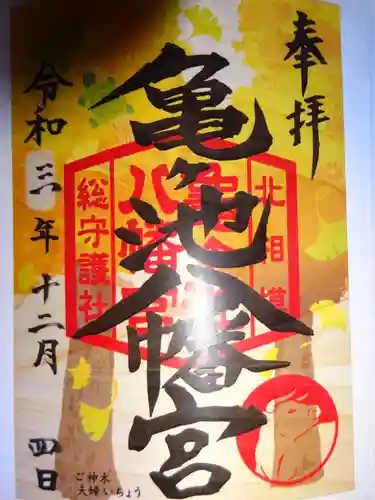 奉拝
亀ヶ池八幡宮
北相模
亀ヶ池
八幡宮
総守護社
令和三年十二月四日
ご神木
夫婦いちょう